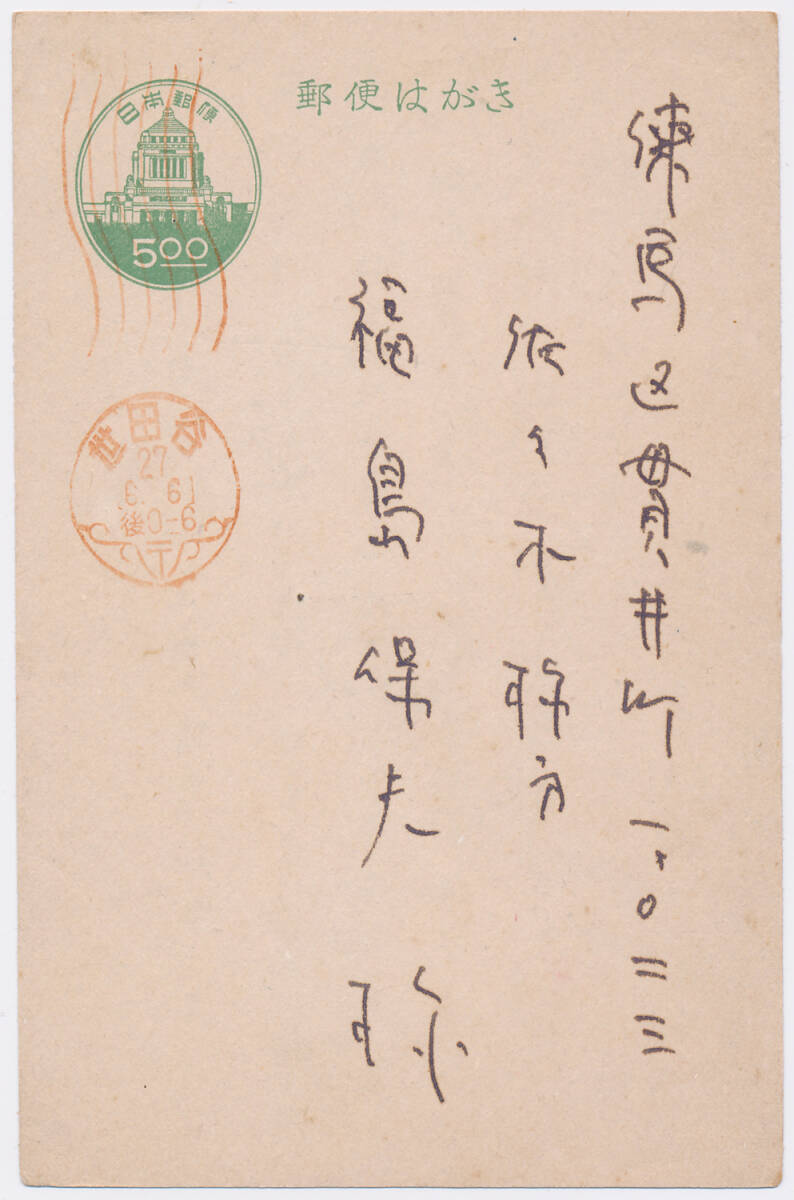 郵便はがき
日本郵便
5.00
世田谷
27
6. 6
後0-6
練馬区貫井町一、〇二三
佐々木様方
福島保夫様